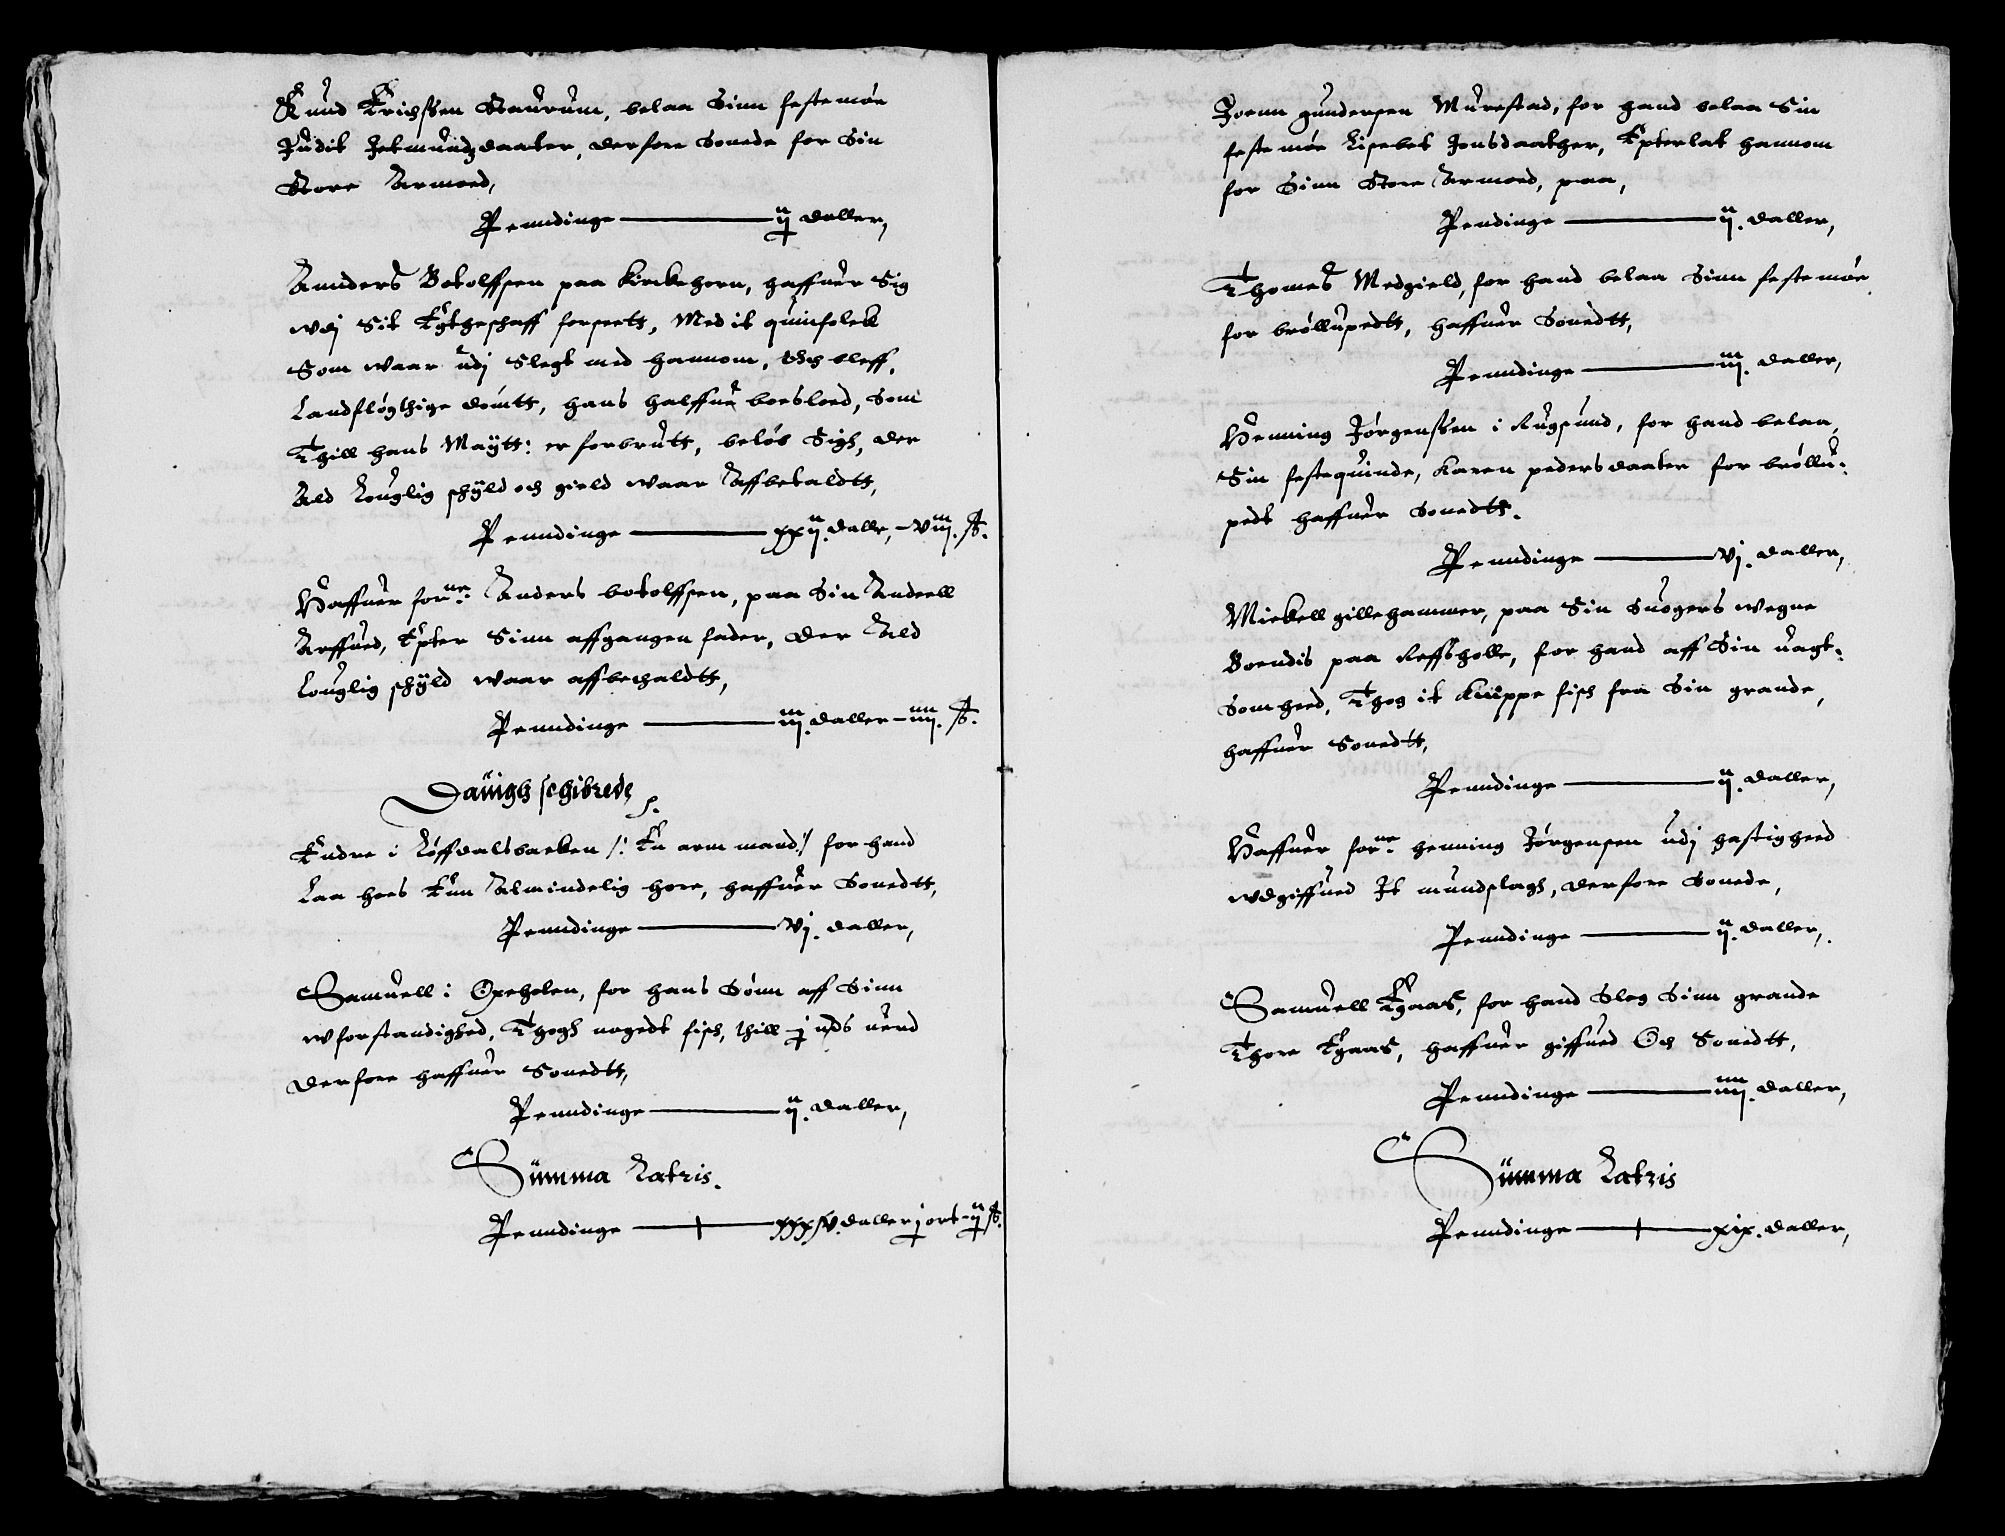 Knud Erichssen Staurum, belaa Sinn festemøe
Judit Jetmundzdaater, derfore Sonede for Sin
Store Armoed,
Penndinge ——— ij daller,
Annders Botolffsen paa Kirckehorn, haffuer Sig
wdj Sit Egtheschaff forseett, Med it quinfolck
Som waar udj Slegt med hannom, Och bleff,
Landfløgthige dømtt, hans halffue boeslod, som
Thill hans Maÿtt: er forbrutt, beløb Sigh, der
Ald Louglig schÿld och gield waar Affbetaldtt,
Penndinge ——— xxij. daller, – viij. ß.
Haffuer forne: Anders botolffsen, paa Sin Andeell
Arffued, Epter Sinn affgangen fader, der Ald
Louglig schÿld waar affbethaldtt,
Penndinge ——— iij. daller – iiij. ß.
Dauigh schibrede
Endre i Løffdalsbacken /: En arm mand:/ for hand
Laa hoes Enn Almindelig hore, haffuer Sonedtt,
Penndinge ——— vj. daller,
Samuell i Opehelen, for hans Sønn aff Sinn
wforstandighed, Thogh nogedt fisch, thill j ... uerd
derfore haffuer Sonedtt,
Penndinge ——— ij. daller,
Summa Latris.
Penndinge ——— xxxv. daller j ort – ij ß.
Joenn gundersen Murestad, for hand belaa Sin
feste møe Lisebet Jonsdaather, Epterlat hannom
for Sinn Store Armoed, paa,
Pendinge ——— ij. daller,
Thomes Medgield, for hand belaa Sinn festemøe
for brøllupedtt, haffuer Sonedtt,
Penndinge ——— iij. daller,
Henning Jørgenssen i Rugsund, for hand belaa,
Sin festequinde, Karen pedersdaater for brøllu:
pedt haffuer Sonedtt.
Penndinge ——— vj. daller,
Mickell gillehammer, paa Sin Suogers wegne
Boendis paa Reffsholle, for hand aff Sin uagt:
somheed, Thog it Knippe fisch fra Sin grande,
haffuer Sonedtt,
Penndinge ——— ij. daller,
Haffuer forne: henning Jørgensen udj hastigheed
wdgiffued It mundslagh, derfore Sonede,
Penndinge ——— ij. daller,
Samuell Egaas, for hand Slog Sinn grande
Thore Egaas, haffuer giffued Och Sonedtt,
Penndinge ——— iiij. daller,
Summa Latris
Penndinge ——— xix. daller,